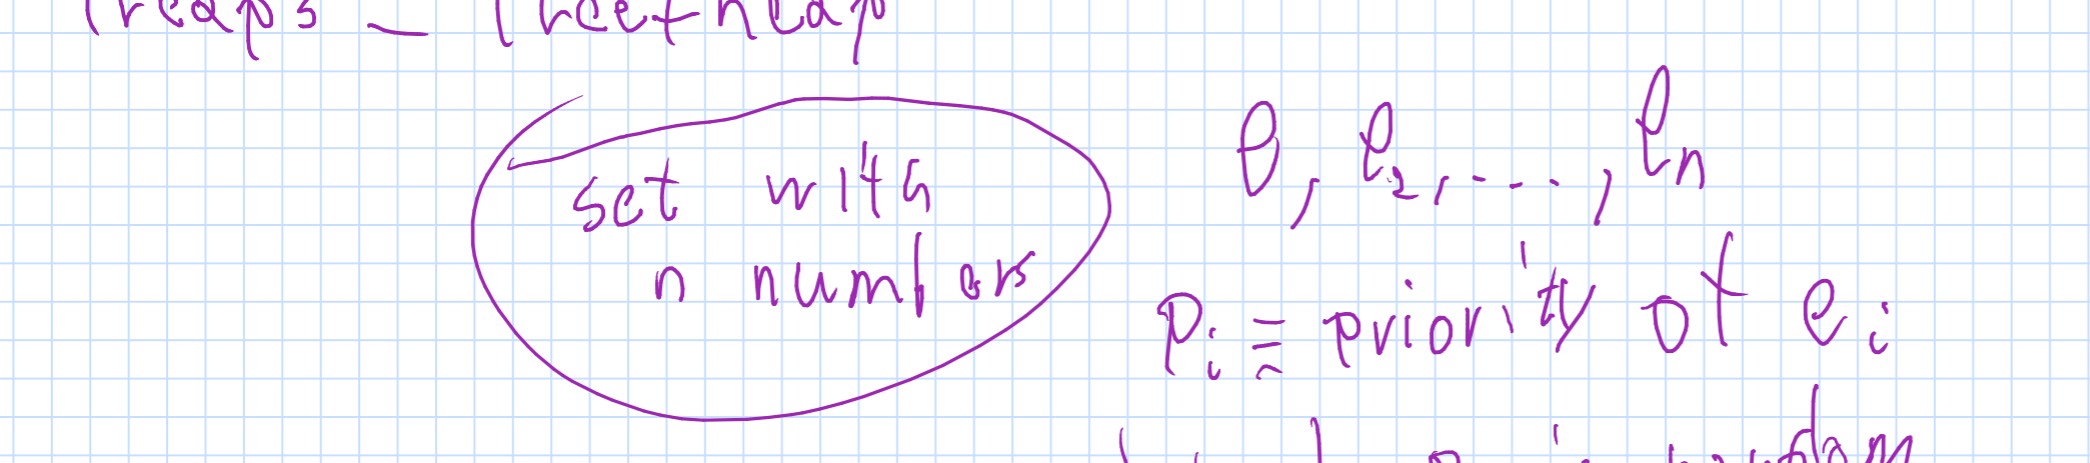 Treaps – Tree+heap
set with
n numbers
e₁, e₂, ..., eₙ
pᵢ ≡ priority of eᵢ
random